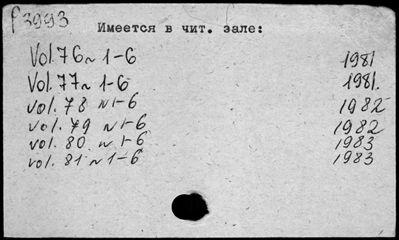 p3993
Имеется в чит. зале:
Vol. 76 n 1-6 1981
Vol. 77 n 1-6 1981.
vol. 78 n 1-6 1982
vol. 79 n 1-6 1982
vol. 80 n 1-6 1983
vol. 81 n 1-6 1983